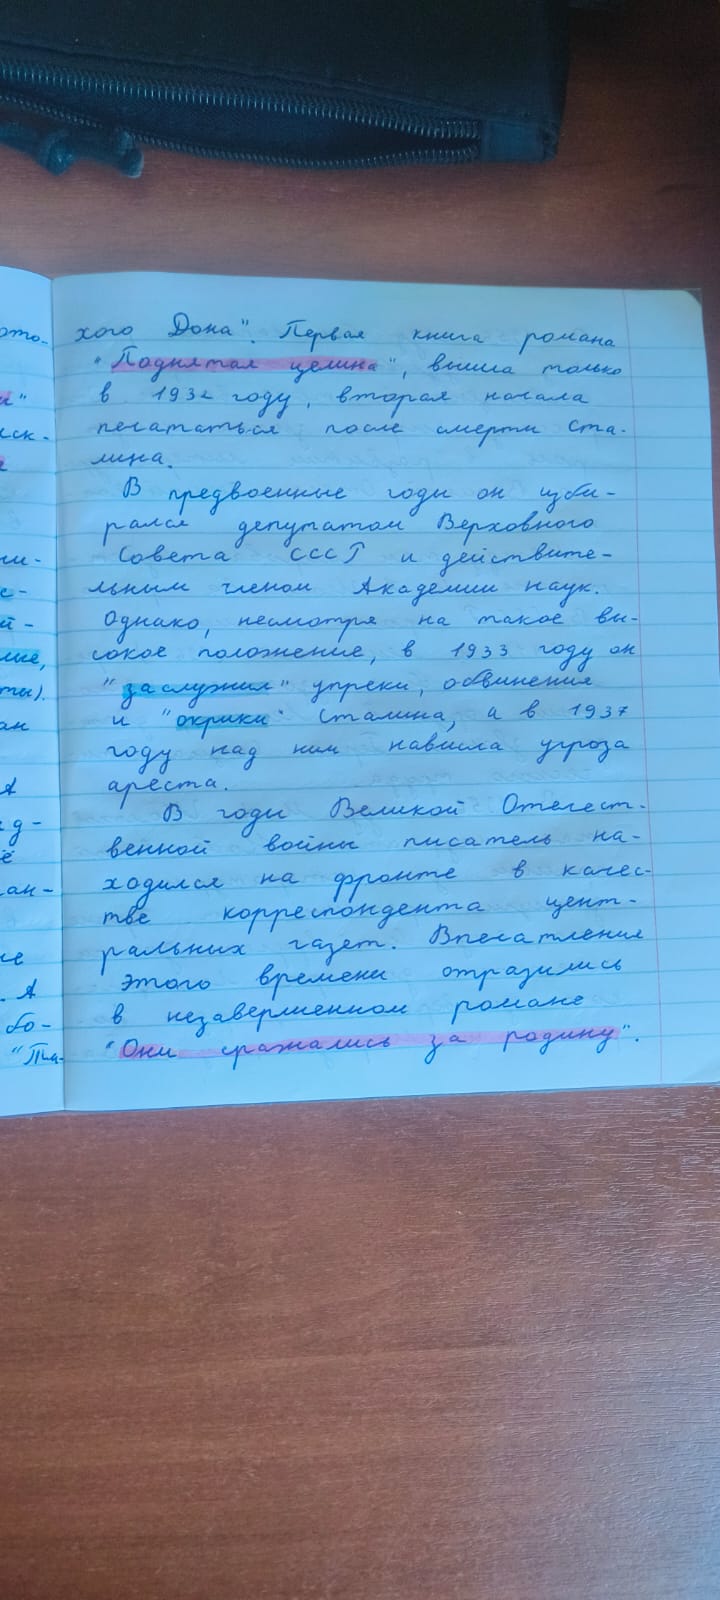 хого Дона". Первая книга романа
"Поднятая целина", вышла только
в 1932 году, вторая начала
печататься после смерти Ста-
лина.
В предвоенные годы он изби-
рался депутатом Верховного
Совета СССР и действите-
льным членом Академии наук.
Однако, несмотря на такое вы-
сокое положение, в 1933 году он
"заслужил" упреки, обвинения
и "окрики" Сталина, а в 1937
году над ним нависла угроза
ареста.
В годы Великой Отечест-
венной войны писатель на-
ходился на фронте в качес-
тве корреспондента цент-
ральных газет. Впечатления
этого времени отразились
в незавершенном романе
"Они сражались за родину".